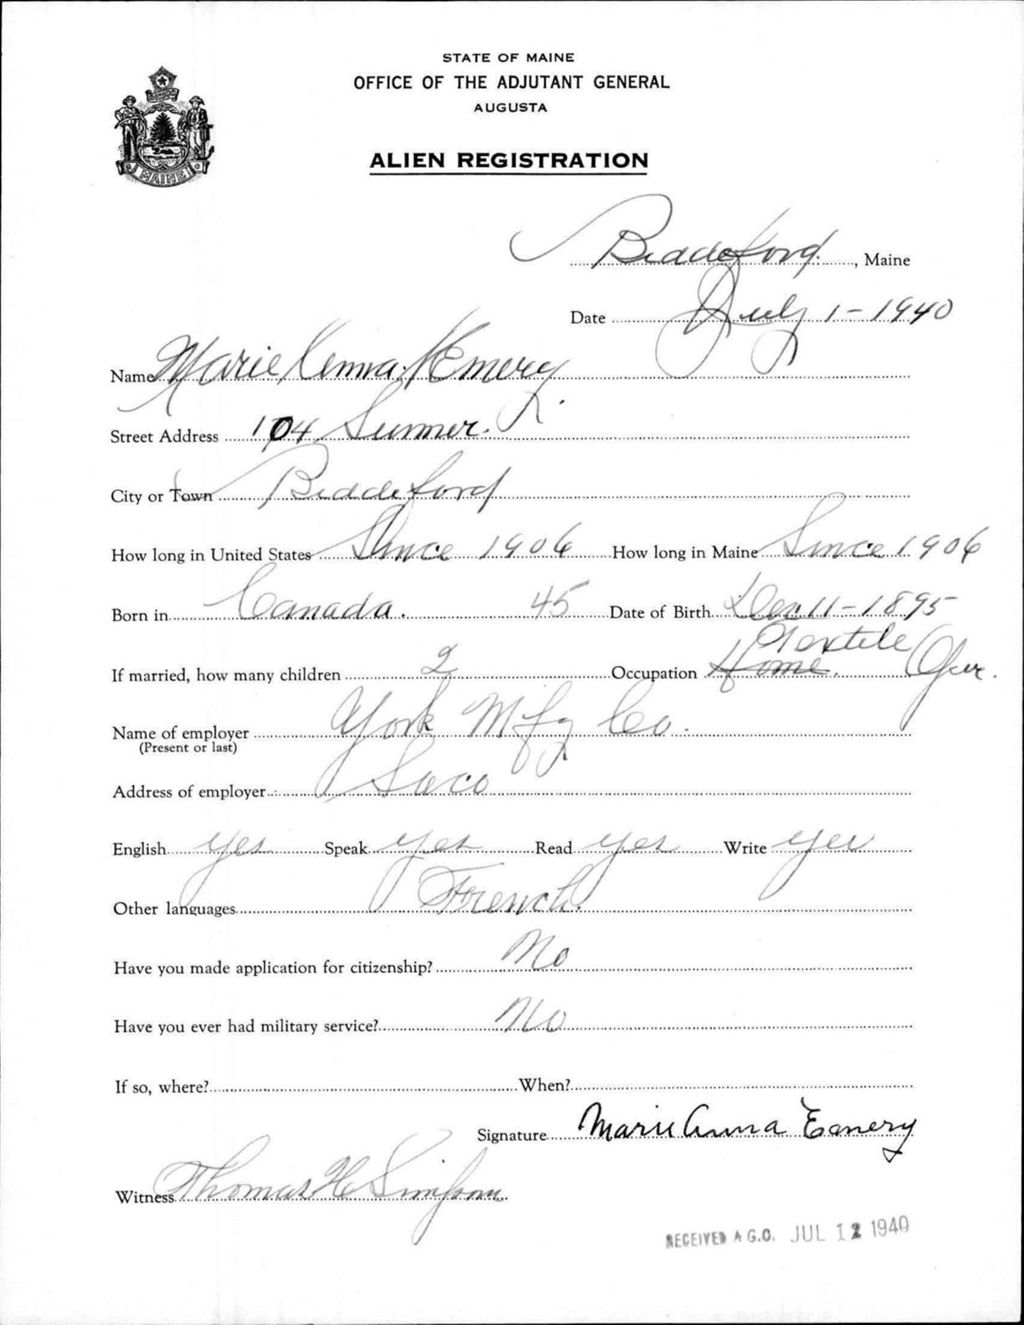 STATE OF MAINE
OFFICE OF THE ADJUTANT GENERAL
AUGUSTA
MAINE
ALIEN REGISTRATION
Biddeford, Maine
Date July 1-1940
Name Marie Anna Emery
Street Address 104 Sumner.
City or Town Biddeford
How long in United States Since 1906 How long in Maine Since 1906
Born in Canada. 45 Date of Birth Dec 11-1895
Textile Oper.
If married, how many children 2 Occupation Home.
Name of employer York Mfg Co.
(Present or last)
Address of employer Saco
English yes Speak yes Read yes Write yes
Other languages French.
Have you made application for citizenship? No
Have you ever had military service? No
If so, where? When?
Signature Marie Anna Emery
Witness Thomas H Simpson
RECEIVED A.G.O. JUL 12 1940